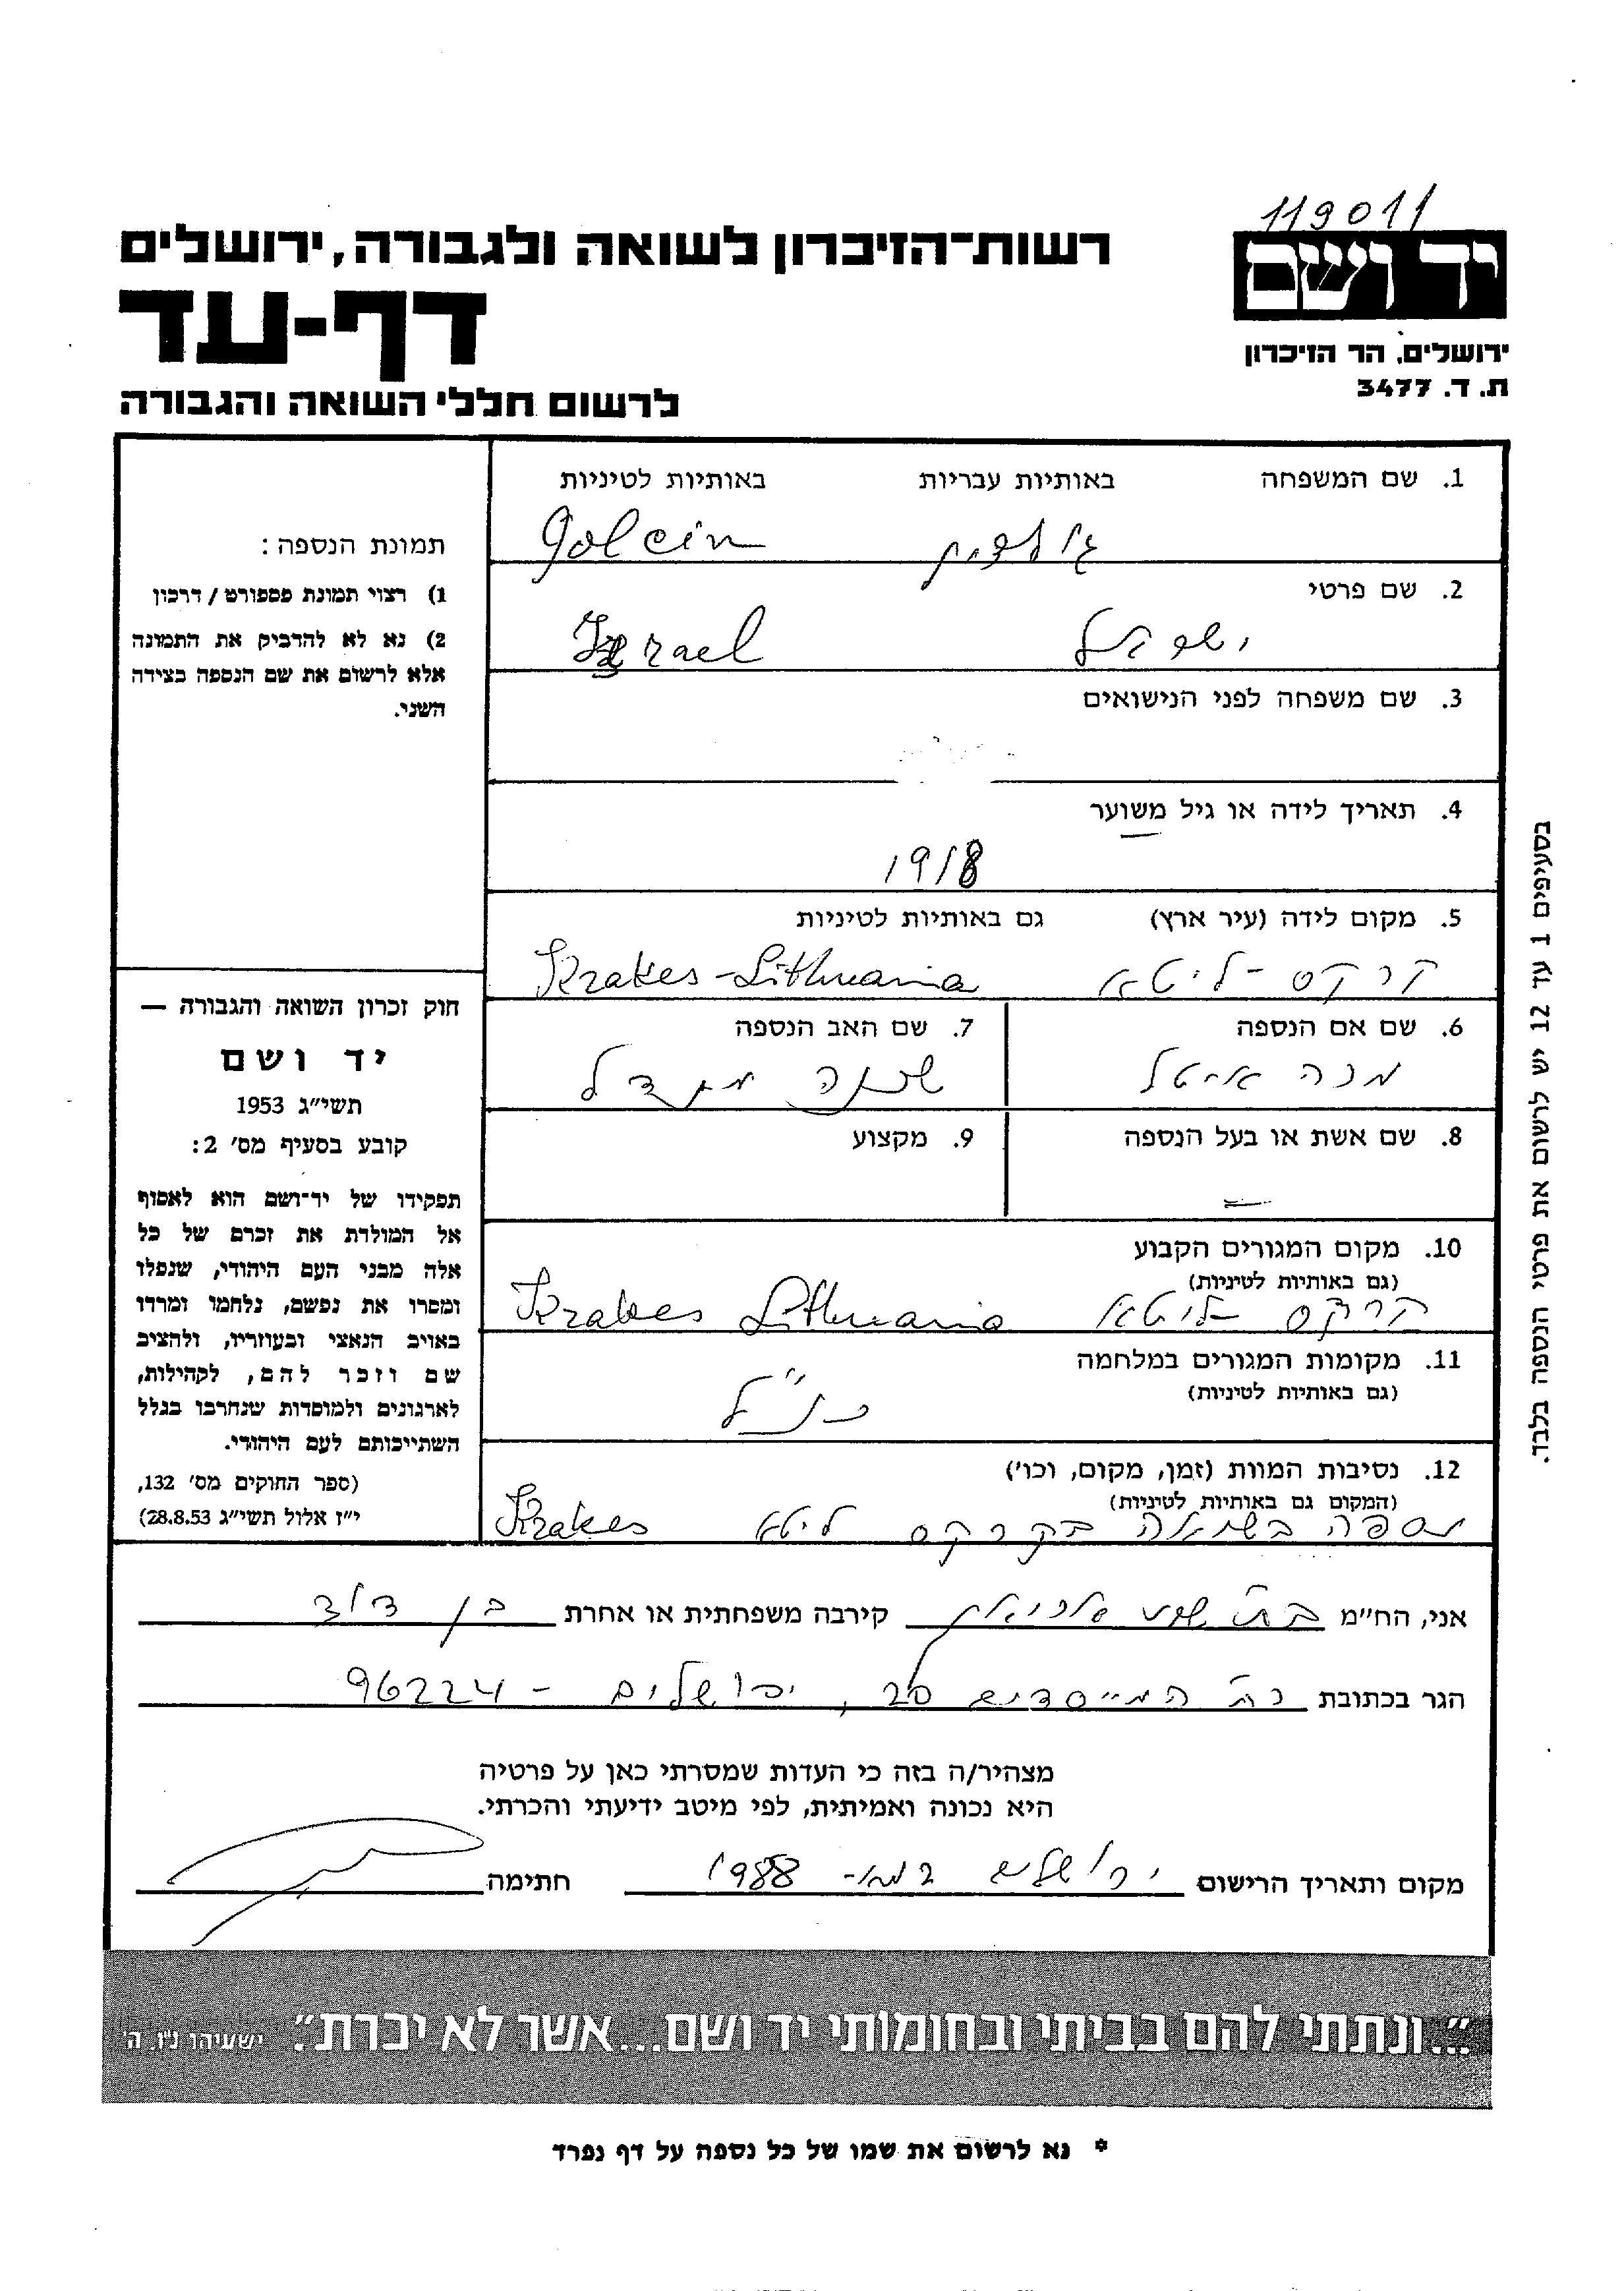 119011
יד ושם
ירושלים, הר הזיכרון
ת. ד. 3477
רשות-הזיכרון לשואה ולגבורה, ירושלים
דף-עד
לרשום חללי השואה והגבורה
1. שם המשפחה באותיות עבריות באותיות לטיניות
Golcin
2. שם פרטי
ישראל Izrael
3. שם משפחה לפני הנישואים
4. תאריך לידה או גיל משוער
1918
5. מקום לידה (עיר ארץ) גם באותיות לטיניות
קרקס - ליטא Krakes - Lithuania
6. שם אם הנספה 7. שם האב הנספה
8. שם אשת או בעל הנספה 9. מקצוע
10. מקום המגורים הקבוע
(גם באותיות לטיניות)
קרקס - ליטא Krakes Lithuania
11. מקומות המגורים במלחמה
(גם באותיות לטיניות)
כנ"ל
12. נסיבות המוות (זמן, מקום, וכו')
(המקום גם באותיות לטיניות)
נספה בשואה בקרקס ליטא Krakes
תמונת הנספה:
1) רצוי תמונת פספורט / דרכון
2) נא לא להדביק את התמונה
אלא לרשום את שם הנספה בצידה
השני.
חוק זכרון השואה והגבורה —
יד ושם
תשי"ג 1953
קובע בסעיף מס' 2:
תפקידו של יד-ושם הוא לאסוף
אל המולדת את זכרם של כל
אלה מבני העם היהודי, שנפלו
ומסרו את נפשם, נלחמו ומרדו
באויב הנאצי ובעוזריו, ולהציב
שם וזכר להם, לקהילות,
לארגונים ולמוסדות שנחרבו בגלל
השתייכותם לעם היהודי.
(ספר החוקים מס' 132,
י"ז אלול תשי"ג 28.8.53)
בסעיפים 1 עד 12 יש לרשום את פרטי הנספה בלבד.
אני, הח"מ בת שבע קירבה משפחתית או אחרת בן דוד
הגר בכתובת המייסדים 20, ירושלים - 96224
מצהיר/ה בזה כי העדות שמסרתי כאן על פרטיה
היא נכונה ואמיתית, לפי מיטב ידיעתי והכרתי.
מקום ותאריך הרישום ירושלים במאי 1988 חתימה
"...ונתתי להם בביתי ובחומותי יד ושם...אשר לא יכרת". ישעיהו נ"ו, ה'
* נא לרשום את שמו של כל נספה על דף נפרד